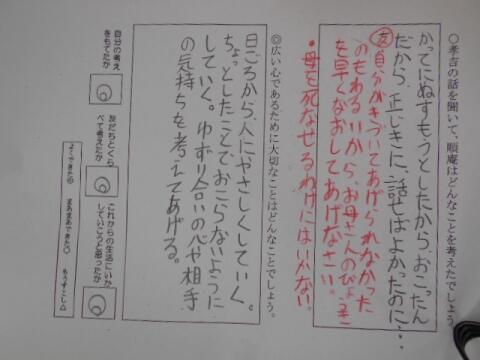 ○孝吉の話を聞いて、順庵はどんなことを考えたでしょう。
かってにぬすもうとしたから、おこったん
だから、正じきに、話せばよかったのに…
友自分がきづいてあげられなかった
のもわるいから、お母さんのびょうき
を早くなおしてあげなさい。
・母を死なせるわけにはいかない。
◎広い心であるために大切なことはどんなことでしょう。
日ごろから、人にやさしくしていく。
ちょっとしたことでおこらないように
していく。ゆずり合いの心や相手
の気持ちを考えてあげる。
自分の考え
をもてたか
友だちとくら
べて考えたか
これからの生活にいか
していこうと思ったか
よくできた◎ まあまあできた○ もうすこし△